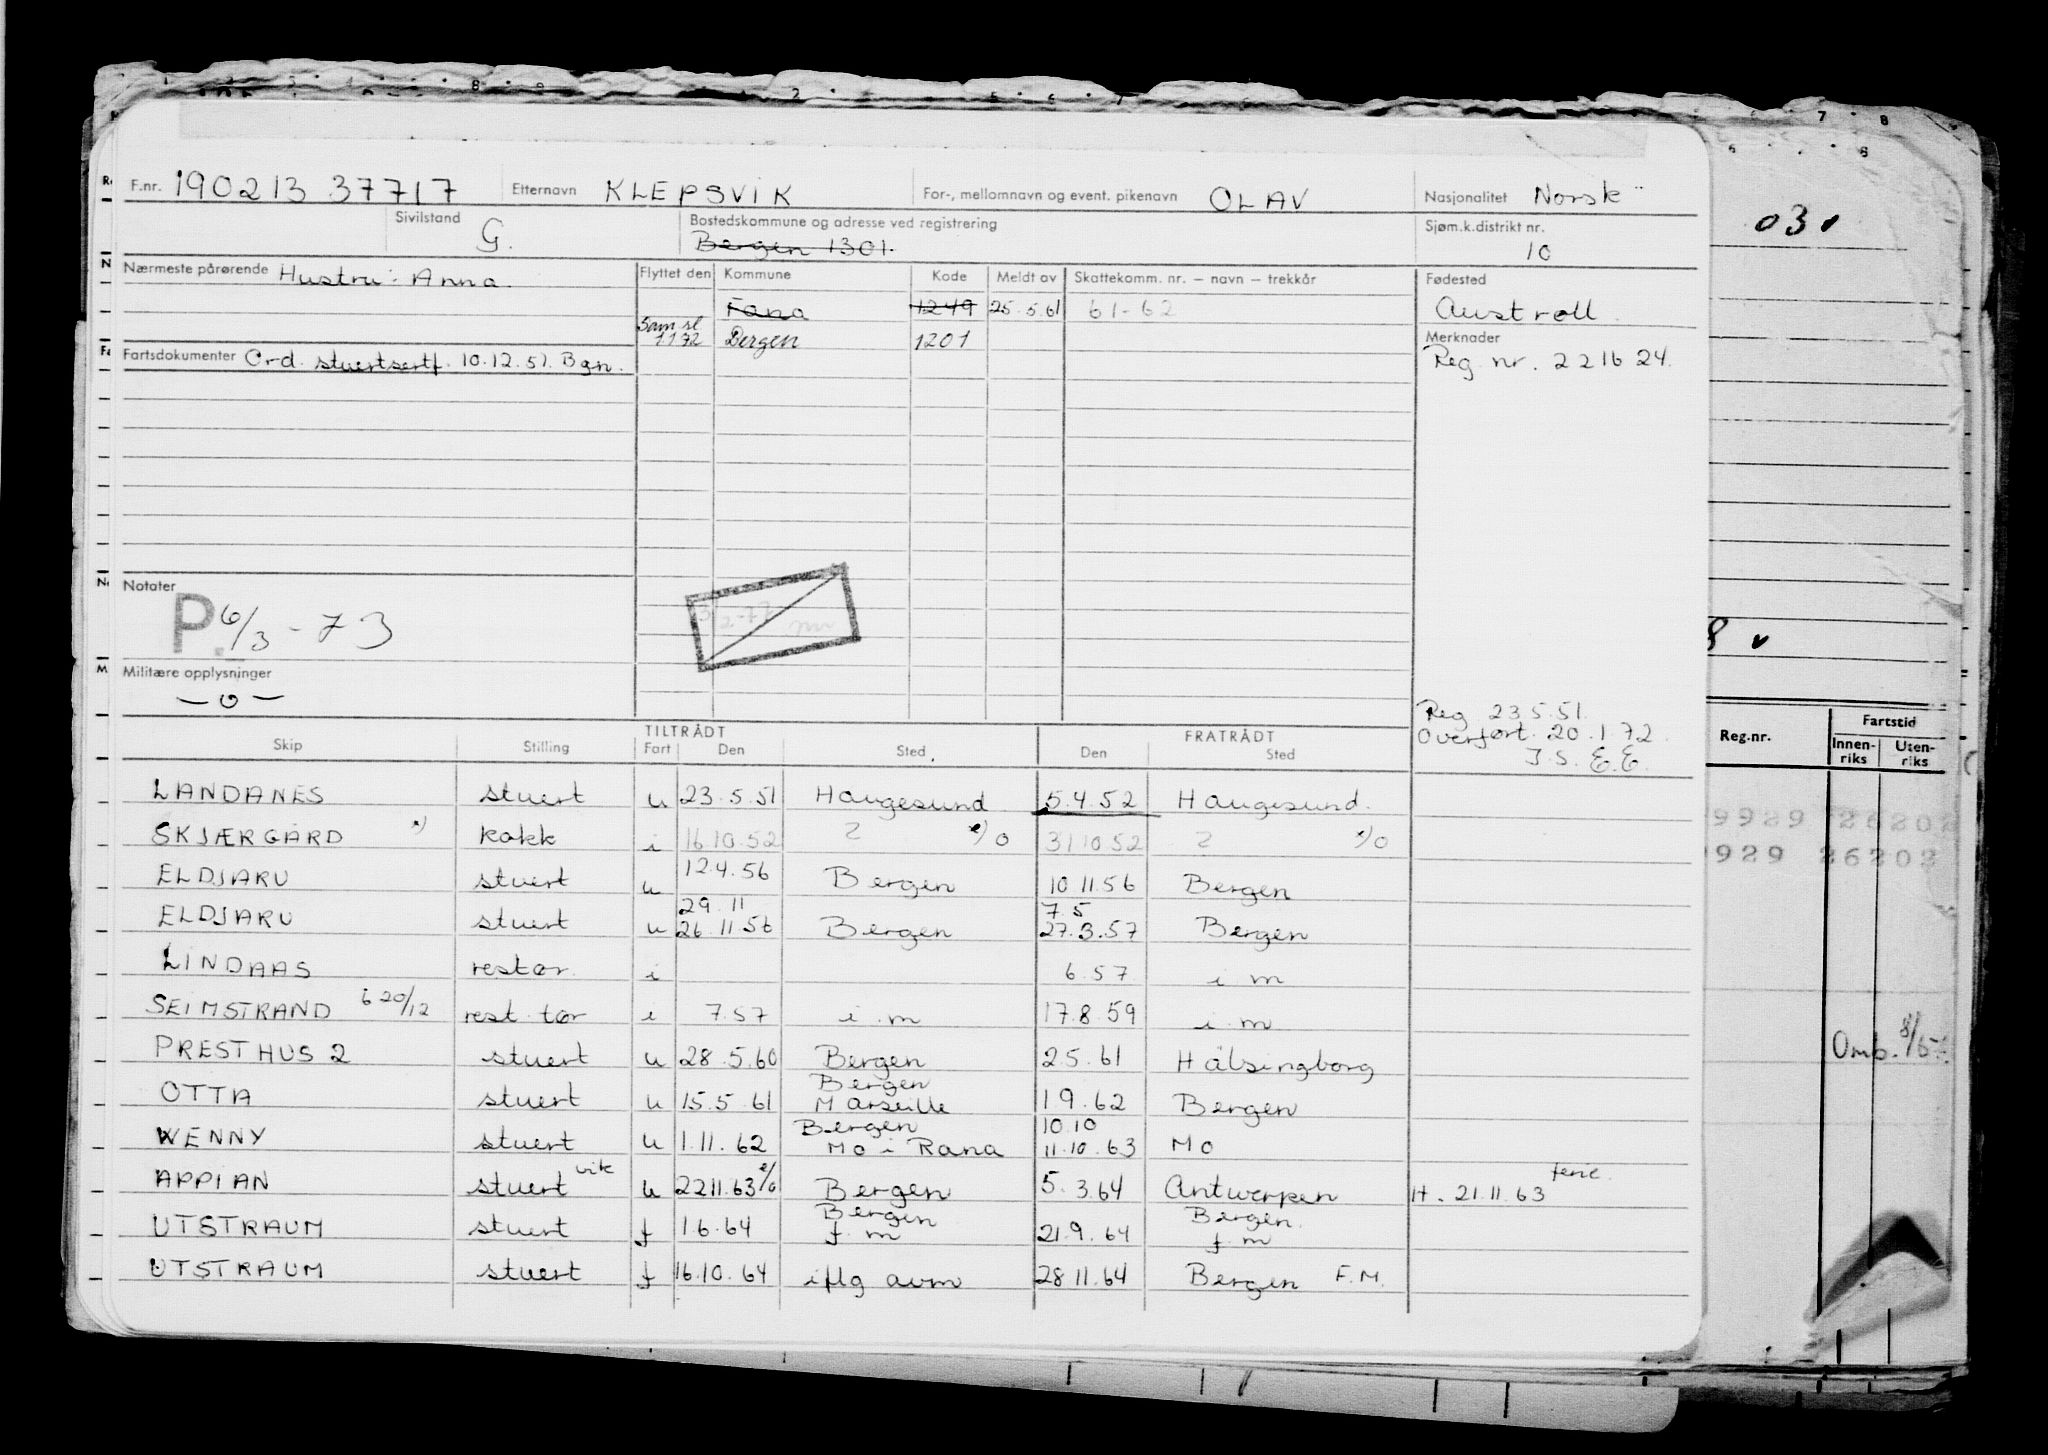 F.nr. 190213 37717 Etternavn KLEPSVIK For-, mellomnavn og event. pikenavn OLAV Nasjonalitet Norsk
Sivilstand G. Bostedskommune og adresse ved registrering Bergen 1301. Sjøm.k.distrikt nr. 10
Nærmeste pårørende Hustru: Anna Flyttet den Kommune Kode Meldt av Skattekomm. nr. – navn – trekkår Fødested
Fana 1249 25.5.61 61-62 Austroll
Sam sl 1 1 72 Bergen 1201 Merknader
Fartsdokumenter Ord. stuertsertf. 10.12.51. Bgn. Reg. nr. 221624.
Notater
P. 6/3-73
Militære opplysninger
—o—
Reg 23.5.51
Overført 20.1.72
J.S. E.E.
TILTRÅDT FRATRÅDT
Skip Stilling Fart Den Sted Den Sted
LANDANES stuert u 23.5.51 Haugesund 5.4.52 Haugesund.
SKJÆRGÅRD x) kokk i 16 10.52 2 x) 0 31 10 52 2 x) 0
ELDJARU stuert u 12.4.56 Bergen 10 11.56 Bergen
29.11 7.5
ELDJARU stuert u 26.11.56 Bergen 27.3.57 Bergen
LINDAAS restør. i 6.57 i m
SEIMSTRAND 6 20/12 rest. tør i 7.57 i m 17.8.59 i m
PRESTHUS 2 stuert u 28.5.60 Bergen 2.5.61 Hälsingborg
Bergen
OTTA stuert u 15.5.61 Marseille 1 9.62 Bergen
Bergen 10.10
WENNY stuert u 1.11.62 Mo i Rana 11.10.63 Mo
APPIAN stuert vik u 22 11.63 Bergen 5.3.64 Antwerpen H. 21.11.63 ferie.
Bergen Bergen.
UTSTRAUM stuert f 1.6.64 f. m 21.9.64 f. m
UTSTRAUM stuert f 16.10.64 iflg avm 28 11.64 Bergen F.M.
030
8
Reg.nr. Fartstid
Innen-riks Uten-riks
9929 26202
9929 26202
Omb.